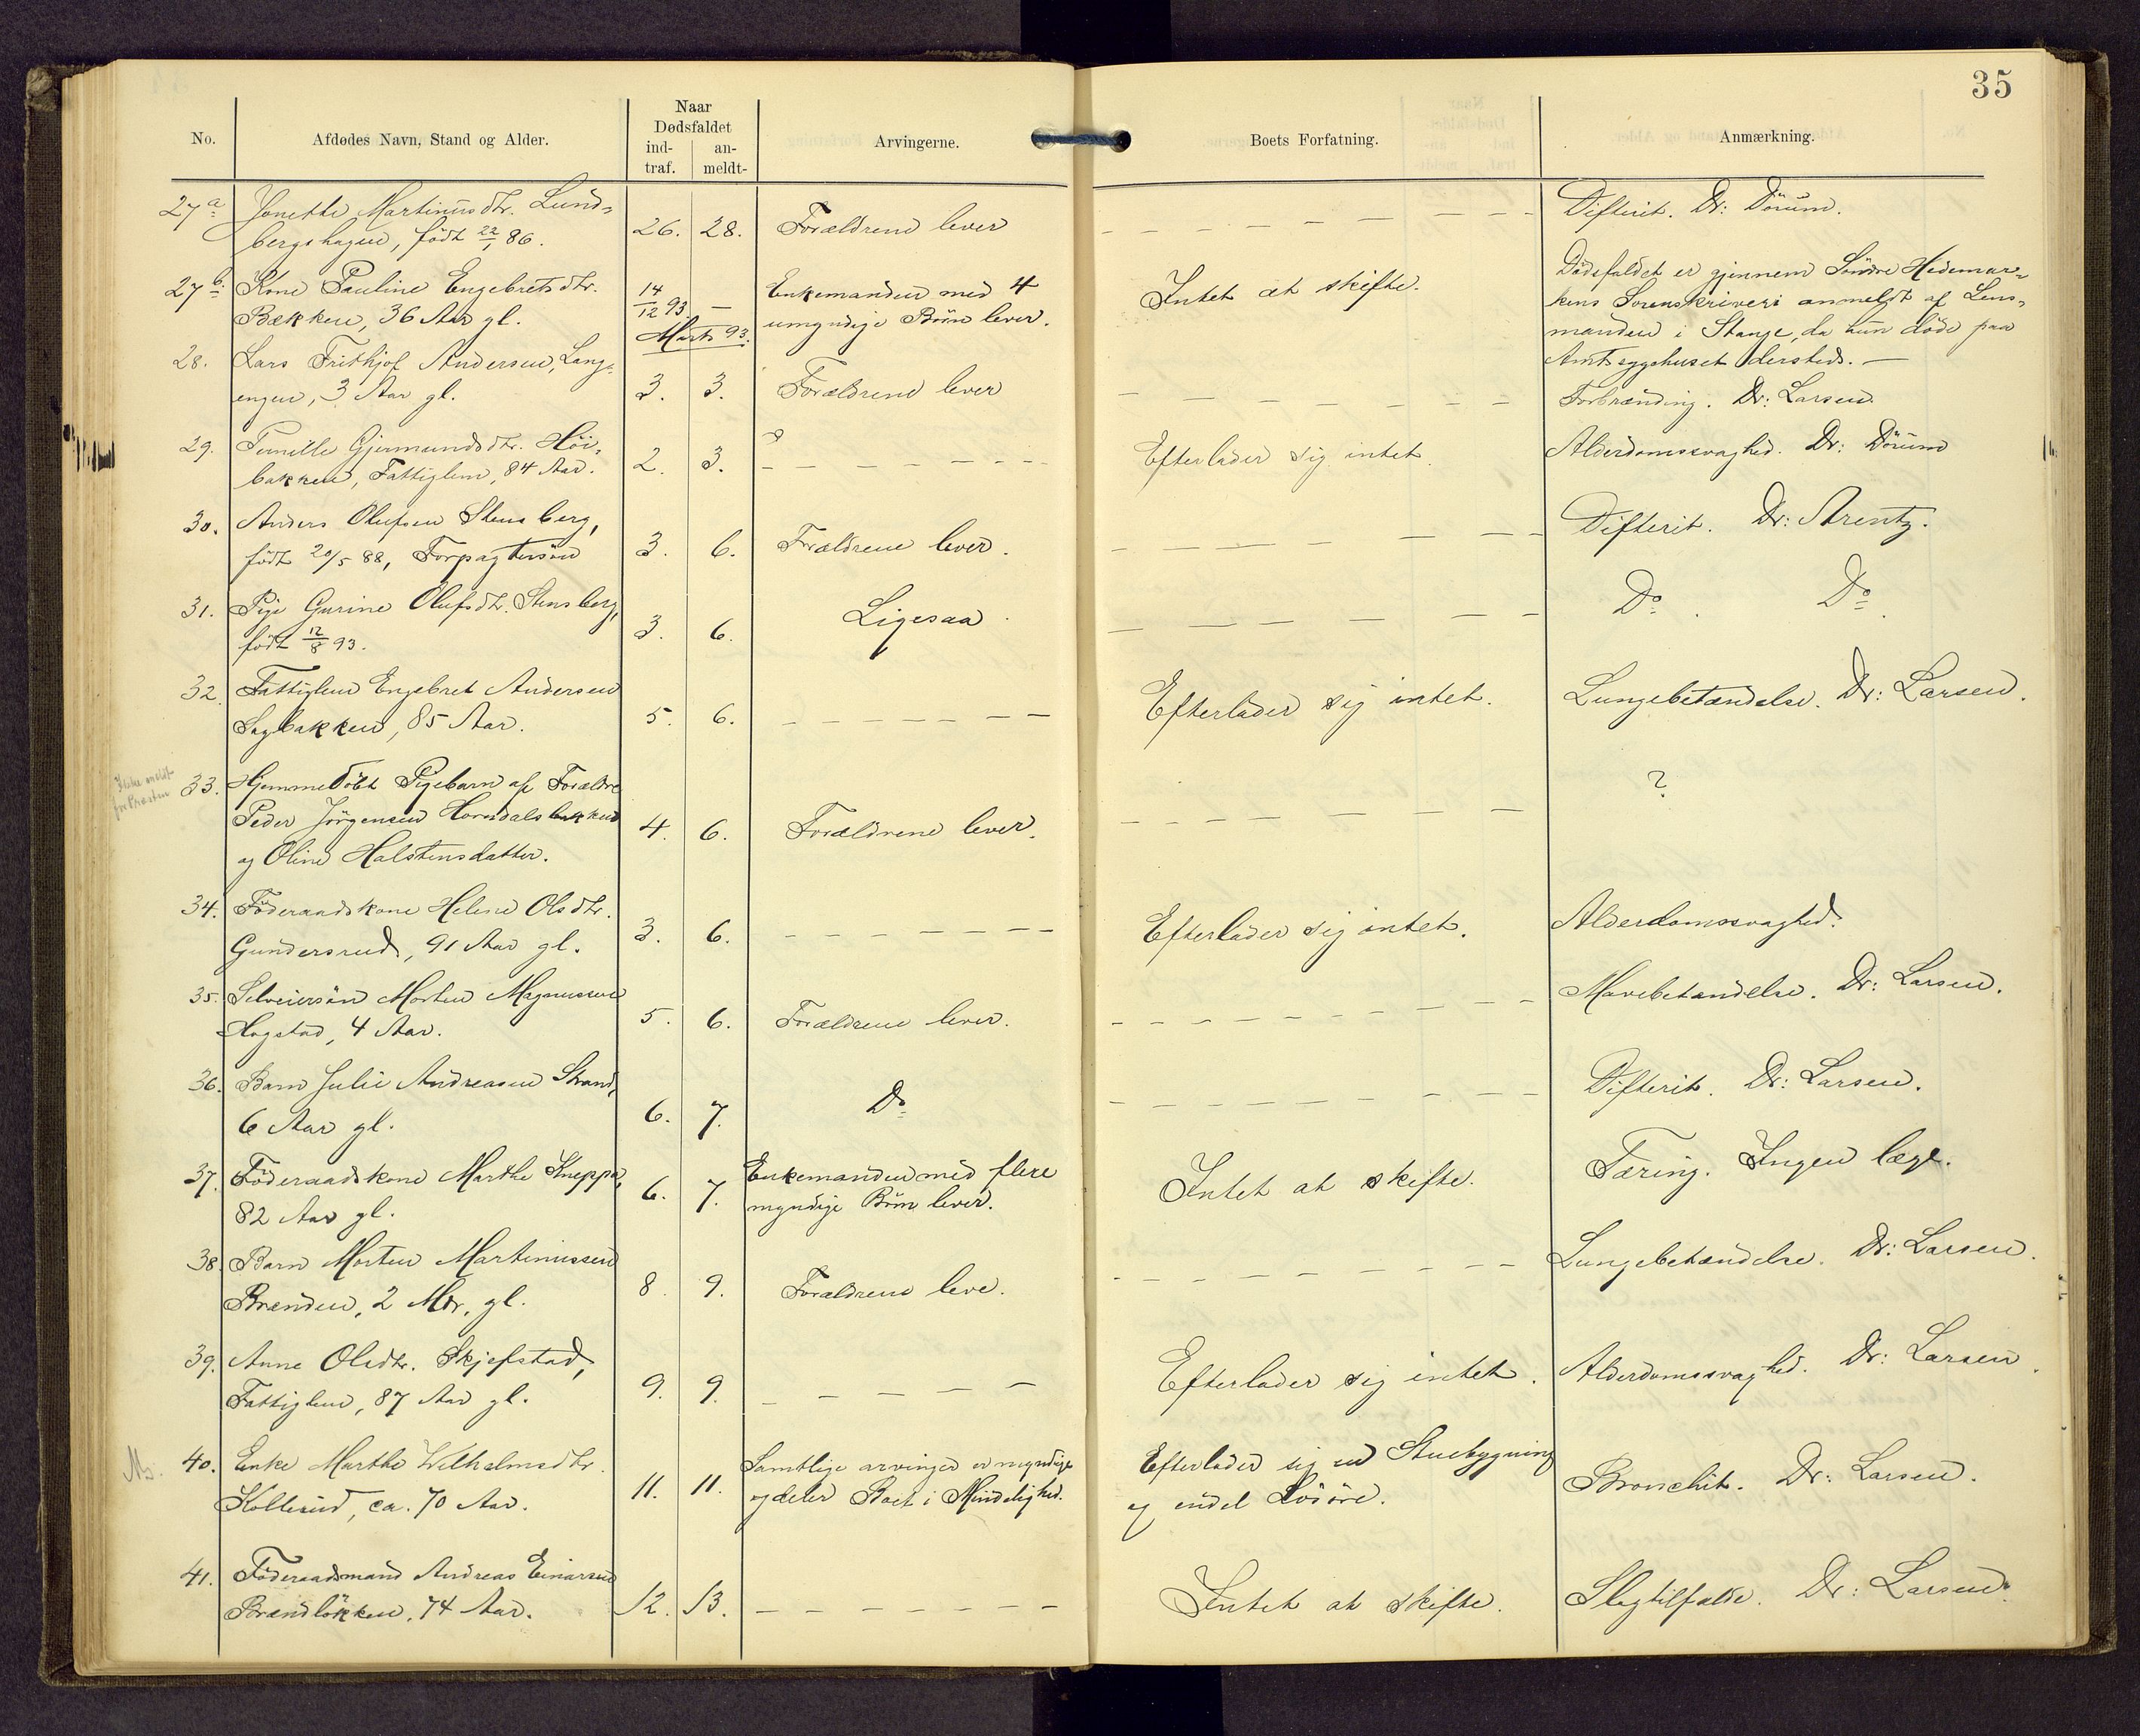 35
No. Afdødes Navn, Stand og Alder. Naar Dødsfaldet ind-traf. an-meldt- Arvingerne. Boets Forfatning. Anmærkning.
27a Jonette Martinusdtr. Lund-
bergshagen, født 22/1 86. 26. 28. Forældrene lever Difterit. Dr: Dörum.
27b. Kone Pauline Engebretsdtr.
Bækken, 36 Aar gl. 14/12 93. — Enkemanden med 4
umyndige Börn lever. Intet at skifte. Dödsfaldet er gjennem Söndre Hedemar-
kens Sorenskriveri anmeldt af Lens-
manden i Stange, da hun döde paa
Amtssygehuset dersteds. —
Marts 93.
28. Lars Frithjof Andersen, Lang-
engen, 3 Aar gl. 3. 3. Forældrene lever Forbrænding. Dr: Larsen.
29. Pernille Gjermundsdtr. Höi-
bakken, Fattiglem, 84 Aar. 2. 3. Efterlader sig intet. Alderdomssvaghed. Dr: Dörum
30. Anders Olufsen Stensberg,
født 20/5 88, Forpagtersön 3. 6. Forældrene lever. Difterit. Dr: Arentz.
31. Pige Gurine Olufsdtr. Stensberg,
født 12/8 93. 3. 6. Ligesaa Do. Do.
32. Fattiglem Engebret Andersen
Sagbakken, 85 Aar. 5. 6. Efterlader sig intet. Lungebetændelse. Dr: Larsen.
33. Hjemmedöbt Pigebarn af Forældre
Peder Jörgensen Horndalsbakken
og Oline Halstensdatter. 4. 6. Forældrene lever. ?
34. Föderaadskone Helene Olsdtr.
Gundersrud, 91 Aar gl. 3. 6. Efterlader sig intet. Alderdomssvaghed.
35. Selveiersön Morten Magnussen
Hogstad, 4 Aar. 5. 6. Forældrene lever. Mavebetændelse. Dr: Larsen.
36. Barn Julie Andreasen Strand,
6 Aar gl. 6. 7. Do. Difterit. Dr: Larsen.
37. Föderaadskone Marthe Kneppa,
82 Aar gl. 6. 7. Enkemanden med flere
myndige Börn lever. Intet at skifte. Tæring. Ingen læge.
38. Barn Morten Martinussen
Brænden, 2 Mdr. gl. 8. 9. Forældrene leve. Lungebetændelse. Dr: Larsen.
39. Anne Olsdtr. Skjefstad,
Fattiglem, 87 Aar gl. 9. 9. Efterlader sig intet. Alderdomssvaghed. Dr: Larsen.
40. Enke Marthe Wilhelmsdtr.
Kollerud, ca. 70 Aar. 11. 11. Samtlige arvinger er myndige
og deler Boet i Mindelighed. Efterlader sig en Stuebygning
og endel Lösöre. Bronchit. Dr: Larsen.
41. Föderaadsmand Andreas Einarsen
Brændlökken, 74 Aar. 12. 13. Intet at skifte. Slagtilfælde. Dr: Larsen.